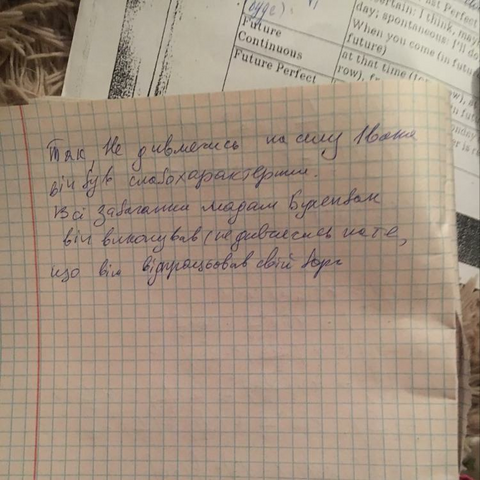 буде).
Future
Continuous
Future Perfect
Perfect
day; spontaneous: I'll do
When you come (in future
future)
at that time
row),
Так, Не дивлячись на силу Івана
він був слабохарактерним.
Всі забаганки мадам Бухенбах
він виконував (не дивлячись на те,
що він відпрацьовав свій борг